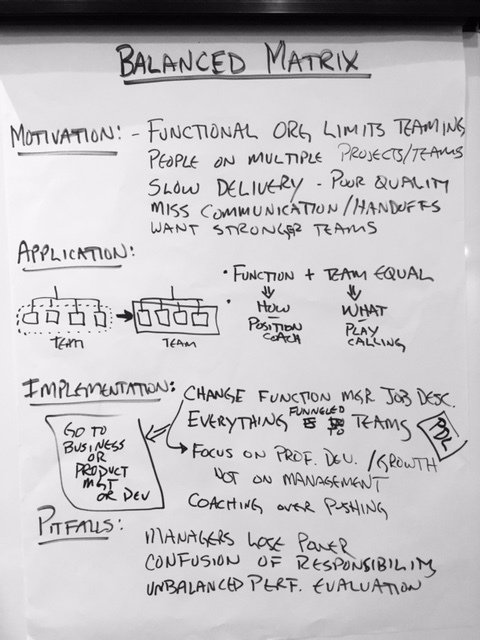 BALANCED MATRIX
MOTIVATION: - FUNCTIONAL ORG LIMITS TEAMING
PEOPLE ON MULTIPLE PROJECTS/TEAMS
SLOW DELIVERY - POOR QUALITY
MISS COMMUNICATION/HANDOFFS
WANT STRONGER TEAMS
APPLICATION:
TEAM
TEAM
• FUNCTION + TEAM EQUAL
• HOW
POSITION
COACH
WHAT
PLAY
CALLING
IMPLEMENTATION:
CHANGE FUNCTION MGR JOB DESC.
EVERYTHING FUNNELED TO TEAMS
FOCUS ON PROF. DEV. / GROWTH
NOT ON MANAGEMENT
COACHING OVER PUSHING
GO TO
BUSINESS
OR
PRODUCT
MGT
OR DEV
PITFALLS:
MANAGERS LOSE POWER
CONFUSION OF RESPONSIBILITY
UNBALANCED PERF. EVALUATION